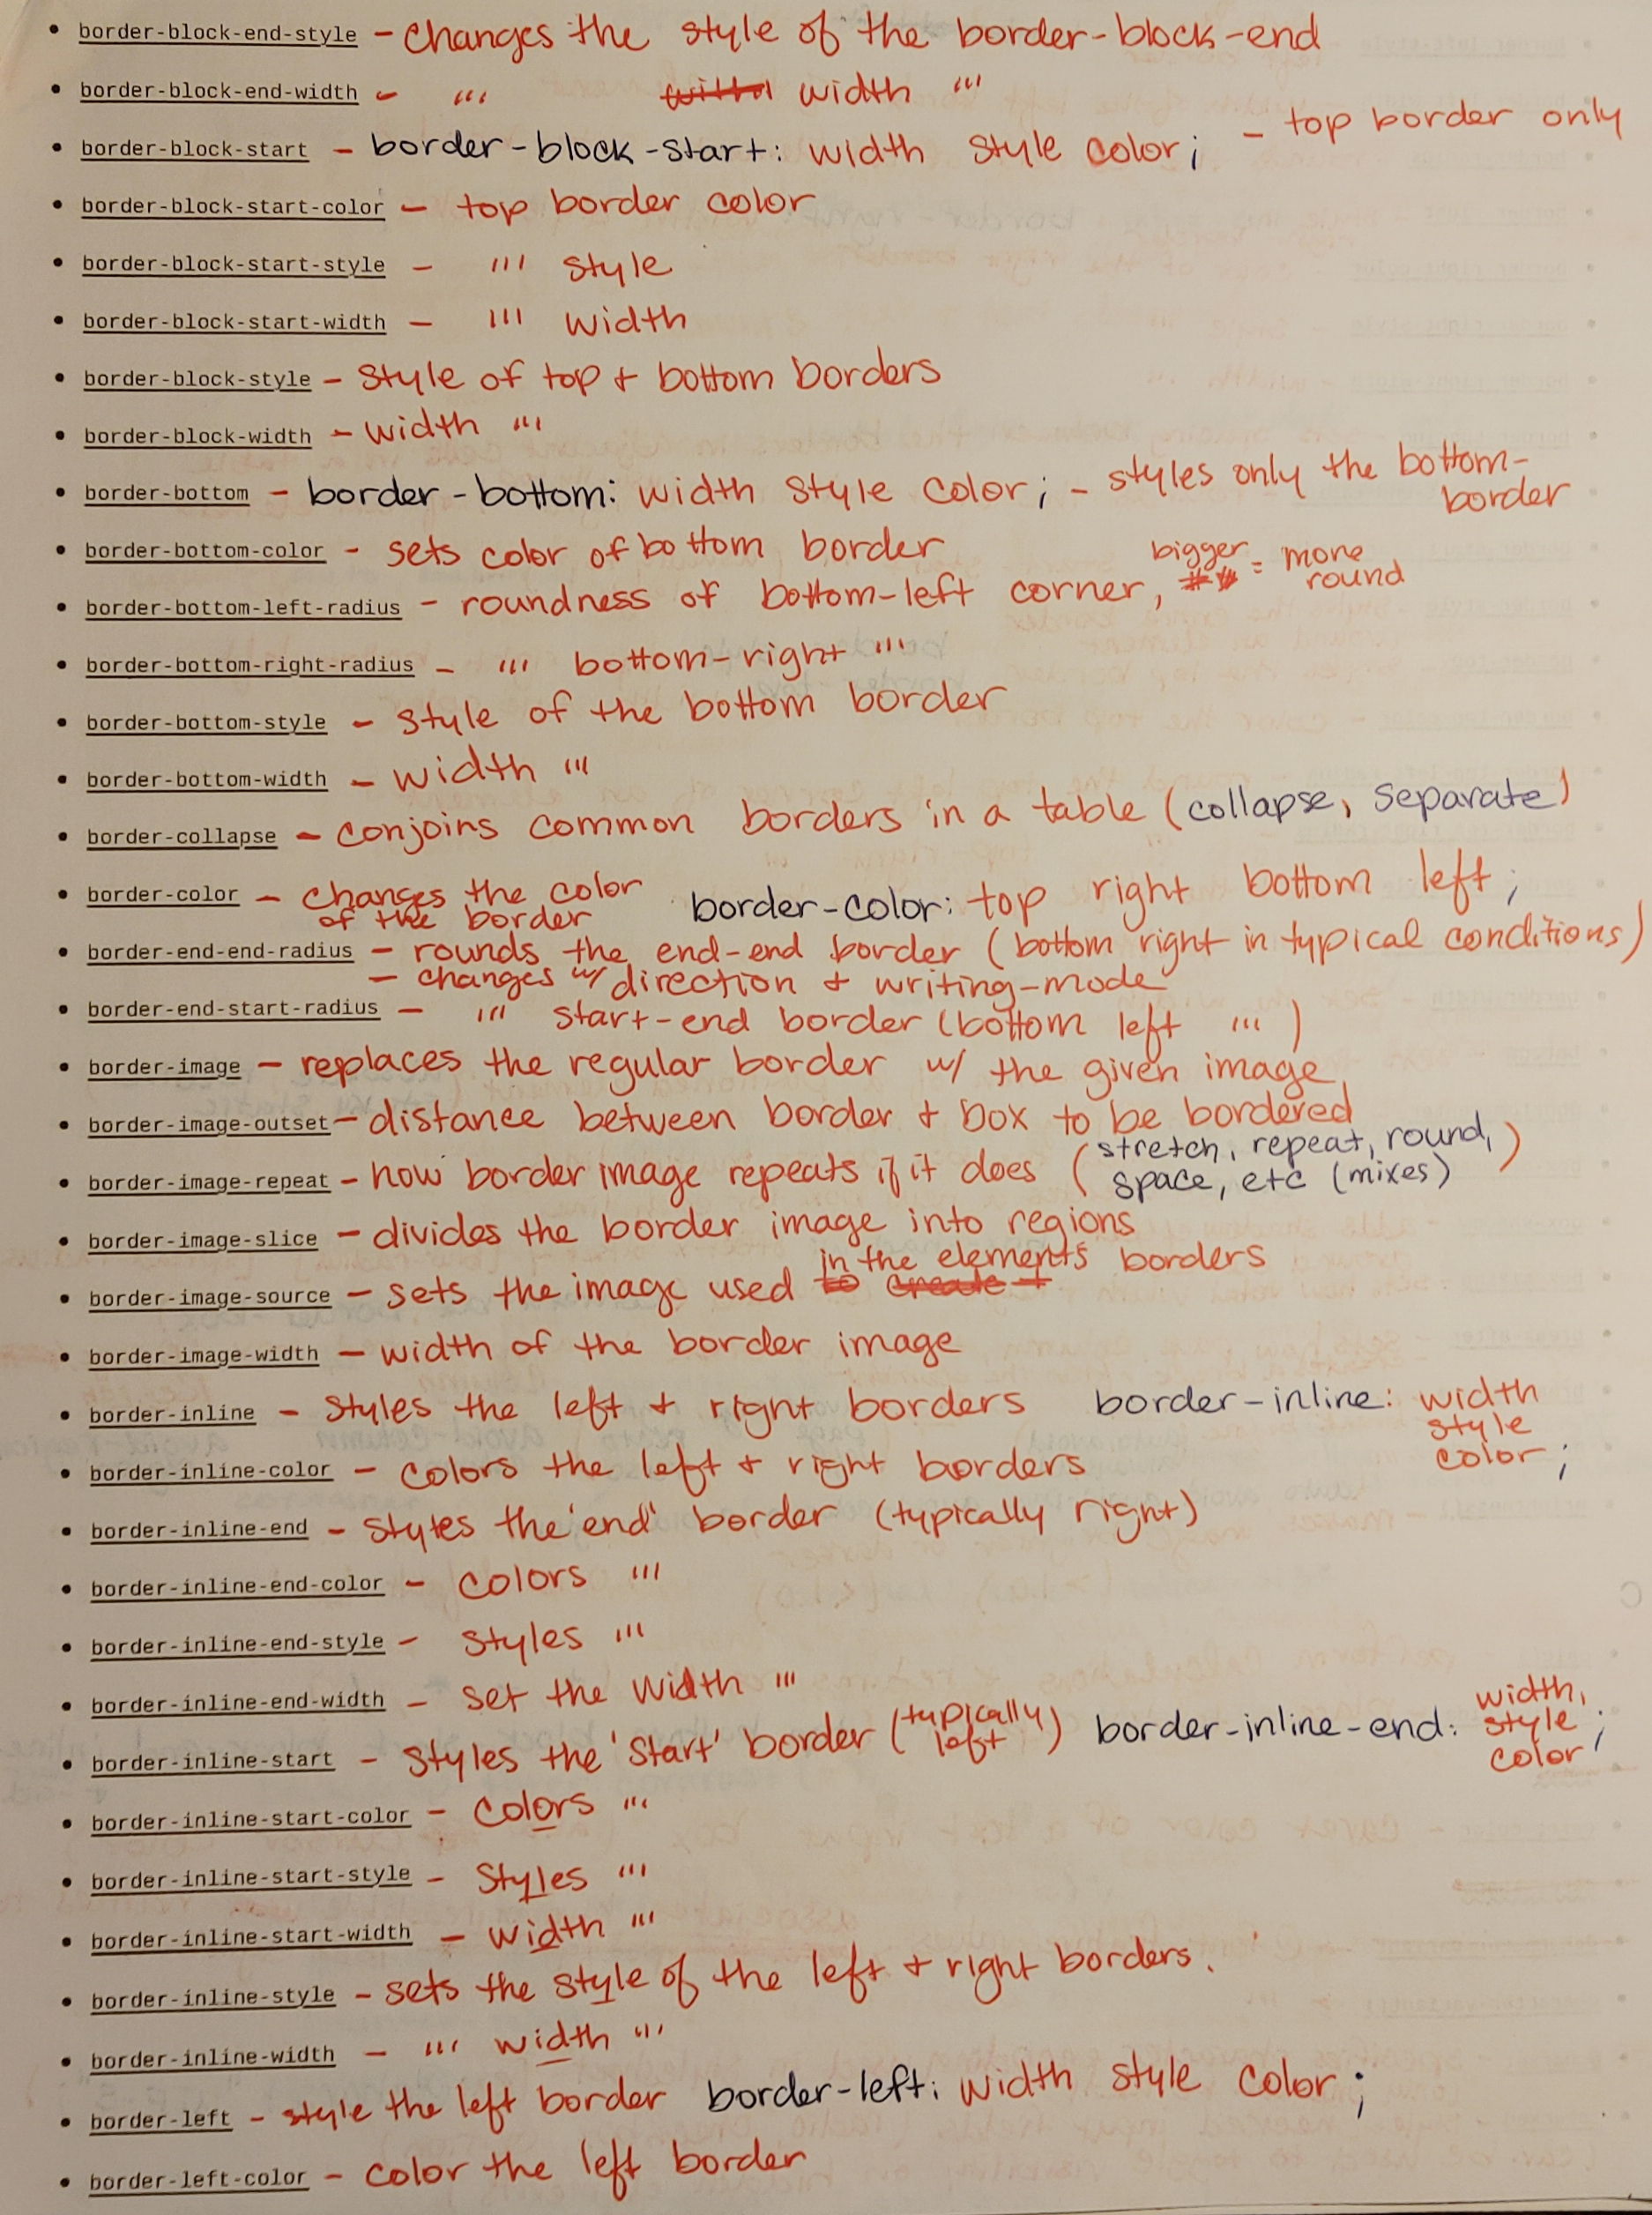 • border-block-end-style - changes the style of the border-block-end
• border-block-end-width - ''' width '''
• border-block-start - border-block-start: width style color; - top border only
• border-block-start-color - top border color
• border-block-start-style - ''' style
• border-block-start-width - ''' width
• border-block-style - style of top + bottom borders
• border-block-width - width '''
• border-bottom - border-bottom: width style color; - styles only the bottom-
border
• border-bottom-color - sets color of bottom border
• border-bottom-left-radius - roundness of bottom-left corner, bigger = more
round
• border-bottom-right-radius - ''' bottom-right '''
• border-bottom-style - style of the bottom border
• border-bottom-width - width '''
• border-collapse - conjoins common borders in a table (collapse, separate)
• border-color - changes the color border-color: top right bottom left;
of the border
• border-end-end-radius - rounds the end-end border (bottom right in typical conditions)
- changes w/ direction + writing-mode
• border-end-start-radius - ''' start-end border (bottom left ''' )
• border-image - replaces the regular border w/ the given image
• border-image-outset - distance between border + box to be bordered
• border-image-repeat - how border image repeats if it does (stretch, repeat, round,
space, etc (mixes) )
• border-image-slice - divides the border image into regions
• border-image-source - sets the image used in the elements borders
• border-image-width - width of the border image
• border-inline - styles the left + right borders border-inline: width
style
color;
• border-inline-color - colors the left + right borders
• border-inline-end - styles the 'end' border (typically right)
• border-inline-end-color - colors '''
• border-inline-end-style - styles '''
• border-inline-end-width - set the width '''
• border-inline-start - styles the 'start' border (typically left) border-inline-end: width,
style
color;
• border-inline-start-color - colors '''
• border-inline-start-style - styles '''
• border-inline-start-width - width '''
• border-inline-style - sets the style of the left + right borders.
• border-inline-width - ''' width '''
• border-left - style the left border border-left: width style color;
• border-left-color - color the left border